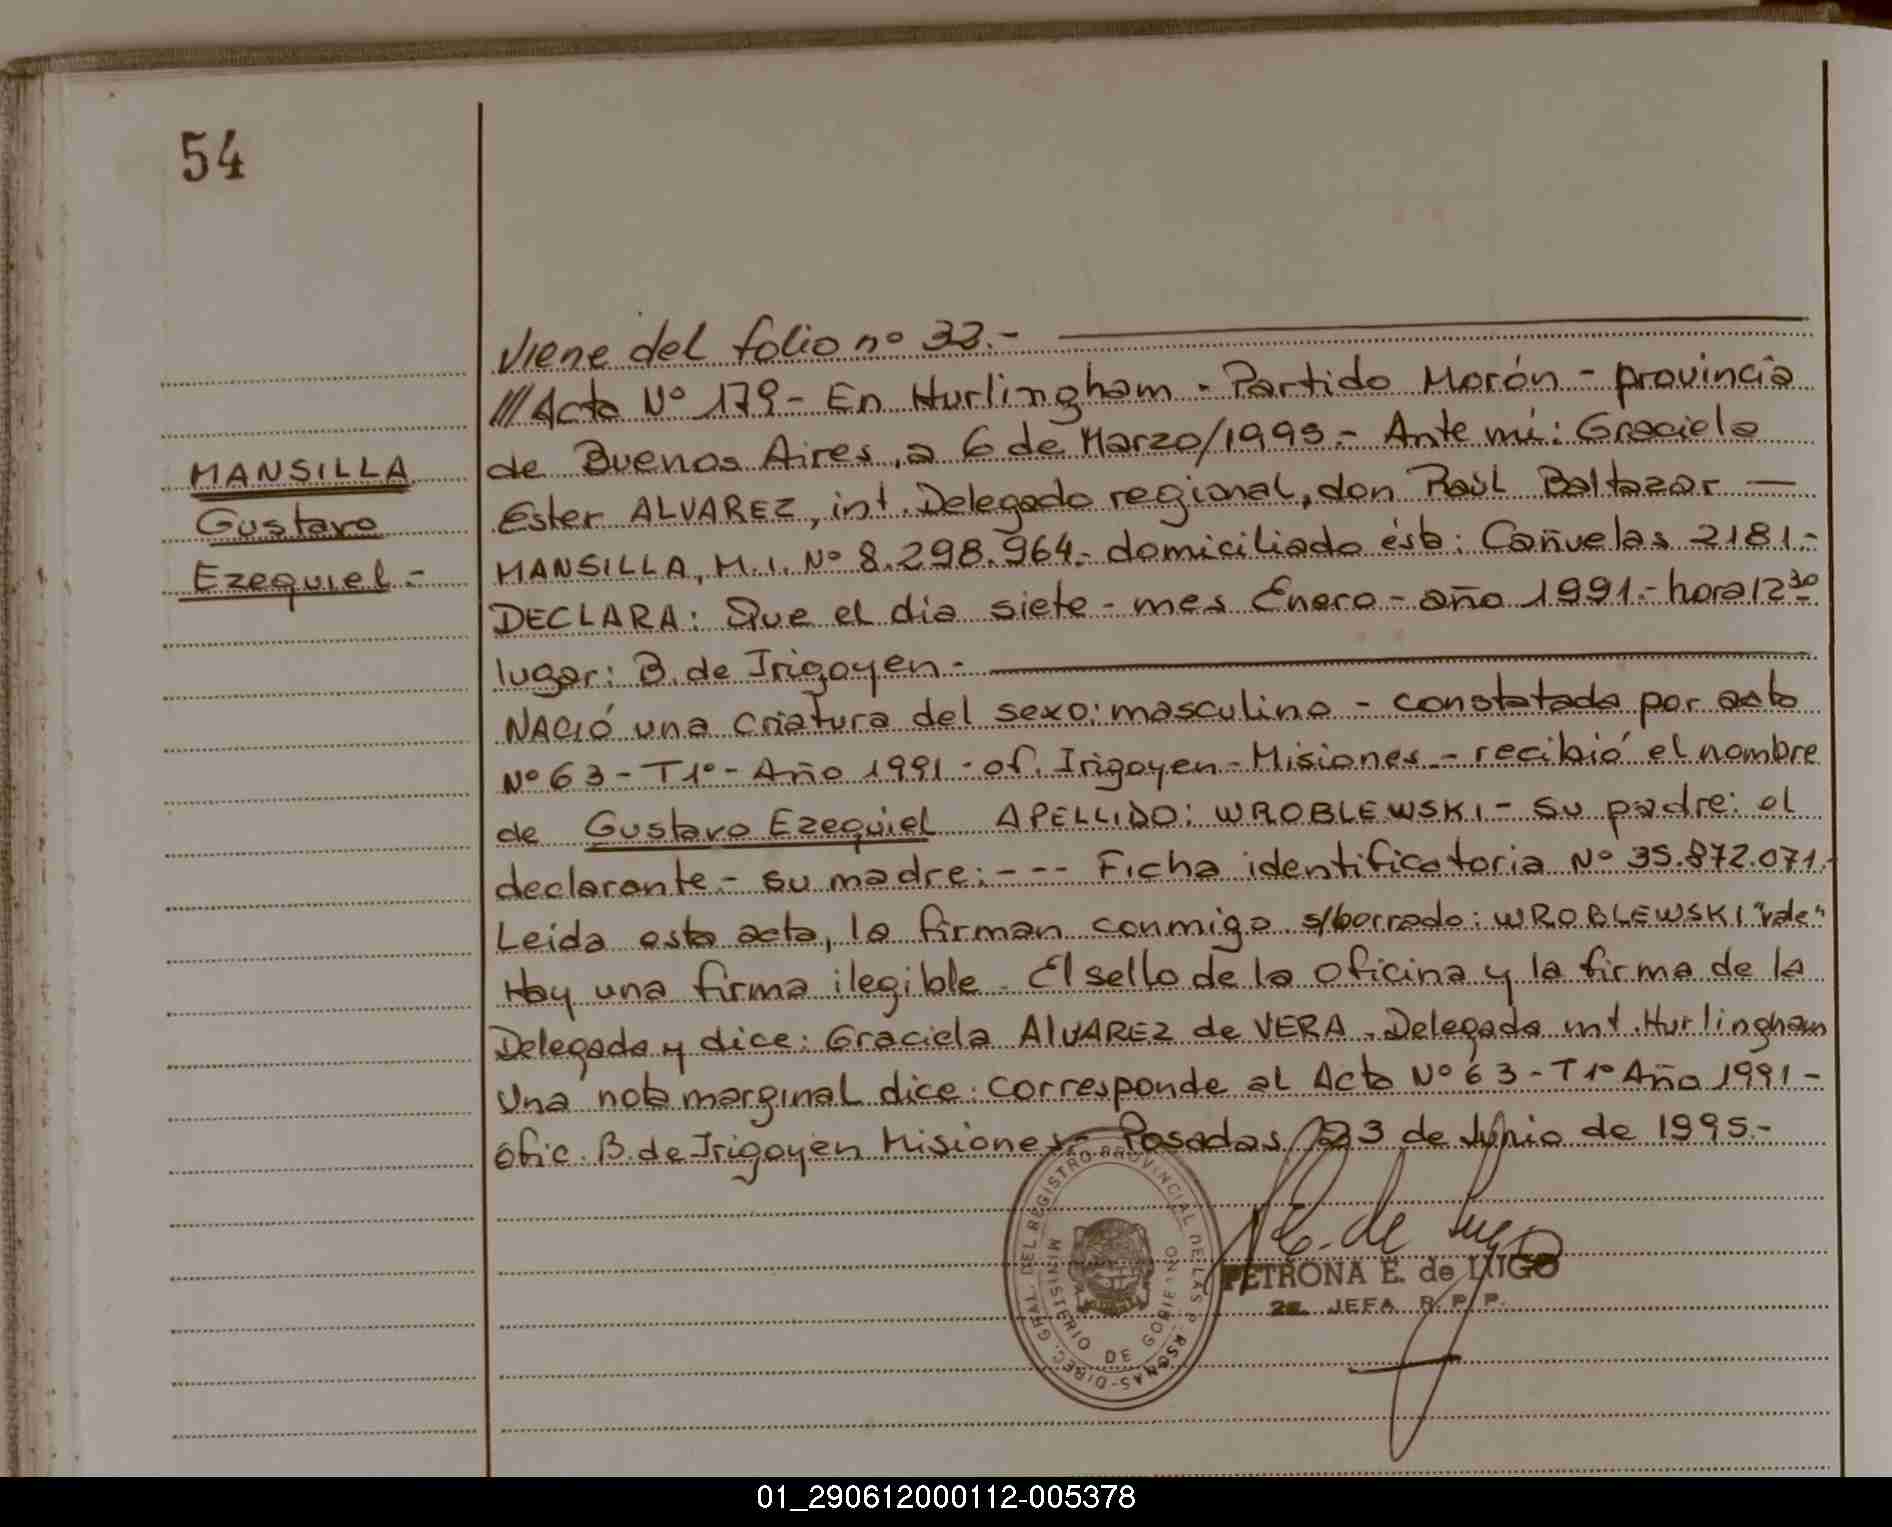 54
Viene del folio nº 33.-
/// Acta Nº 179- En Hurlingham - Partido Morón - provincia
de Buenos Aires, a 6 de Marzo/1995.- Ante mi: Graciela
Ester ALVAREZ, int. Delegado regional, don Raúl Baltazar —
MANSILLA, M.I. Nº 8.298.964.- domiciliado ésta: Cañuelas 2181.-
DECLARA: Que el dia siete - mes Enero - año 1991.- hora 12 30
lugar: B. de Irigoyen.-
NACIÓ una criatura del sexo: masculino - constatada por acta
Nº 63 - T1º - Año 1991 - of. Irigoyen - Misiones - recibió el nombre
de Gustavo Ezequiel APELLIDO: WROBLEWSKI - su padre: el
declarante - su madre: --- Ficha identificatoria Nº 35.872.071.-
Leida esta acta, la firman conmigo s/borrado: WROBLEWSKI "vale"
Hay una firma ilegible. El sello de la oficina y la firma de la
Delegada y dice: Graciela AlVAREZ de VERA. Delegada int. Hurlingham
Una nota marginal dice: corresponde al Acta Nº 63 - T1º Año 1991 -
ofic. B. de Irigoyen Misiones.- Posadas, 23 de Junio de 1995.-
MANSILLA
Gustavo
Ezequiel.-
DIREC. GRAL. DEL REGISTRO PROVINCIAL DE LAS P RSONAS-
MINISTERIO DE GOBIERNO
P. E. de Lugo
PETRONA E. de LUGO
2a. JEFA R. P. P.
01_290612000112-005378